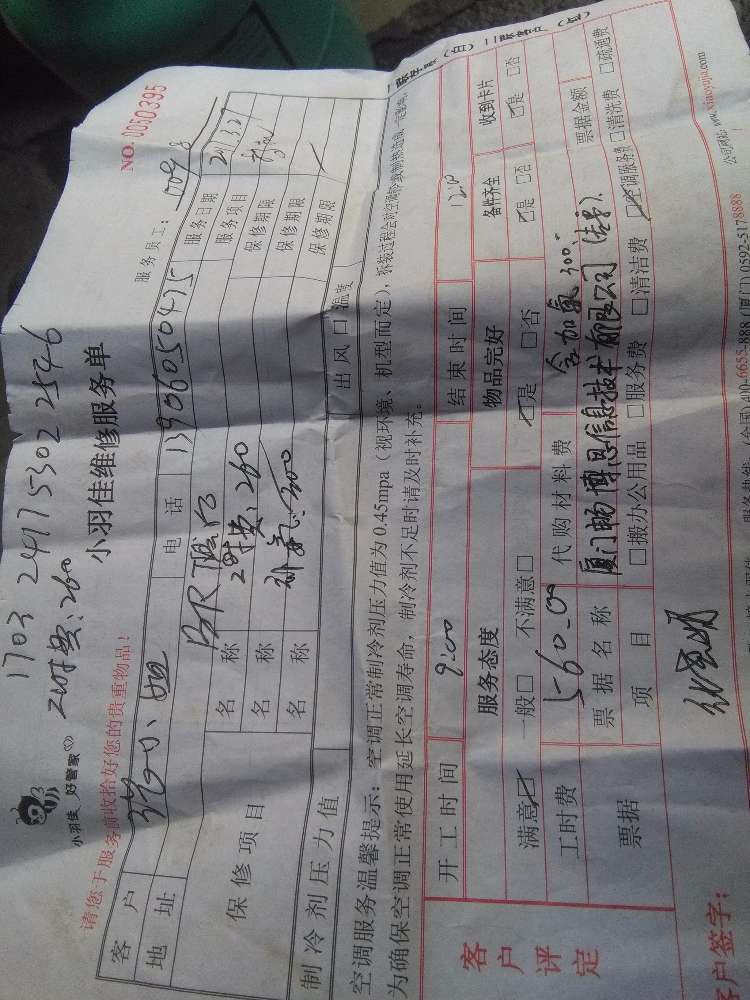 1703 24175302 2546
工时费:260
小羽佳 好管家
小羽佳维修服务单
NO. 0050395
请您于服务前收拾好您的贵重物品!
服务员工:
客户 小姐 电话 13906050475 服务日期
地址 服务项目
保修项目 名称 保修期限
名称 工时费:260 保修期限
名称 300 保修期限
制冷剂压力值 出风口温度
空调服务温馨提示:空调正常制冷剂压力值为0.45mpa(视环境、机型而定),拆装过程会对空调
为确保空调正常使用延长空调寿命,制冷剂不足时请及时补充。
客户评定
开工时间 9:00 结束时间 12:00
服务态度 物品完好 备件齐全 收到卡片
满意☑ 一般□ 不满意□ ☑是 □否 ☑是 □否 ☑是 □否
工时费 560.00 代购材料费 含加氟300.- 票据金额
票据 票据名称 厦门畅博思信息技术有限公司
项目 □搬办公用品 □服务费 □清洁费 ☑空调服务费 □清洗费 □疏通费
客户签字:
400-6655-888 (厦门)0592-5178888
公司网站: www.xiaoyujia.com